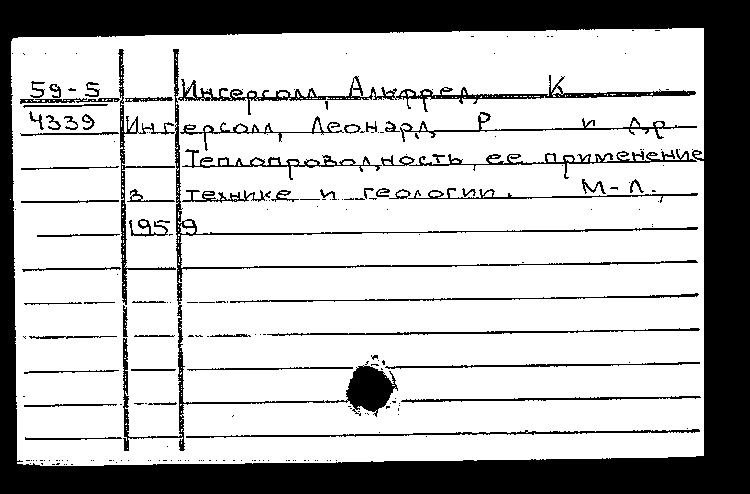 59-5 Ингерсолл, Альфред, К
4339 Ингерсолл, Леонард, Р и др
Теплопроводность, ее применение
в технике и геологии. М-Л.,
1959